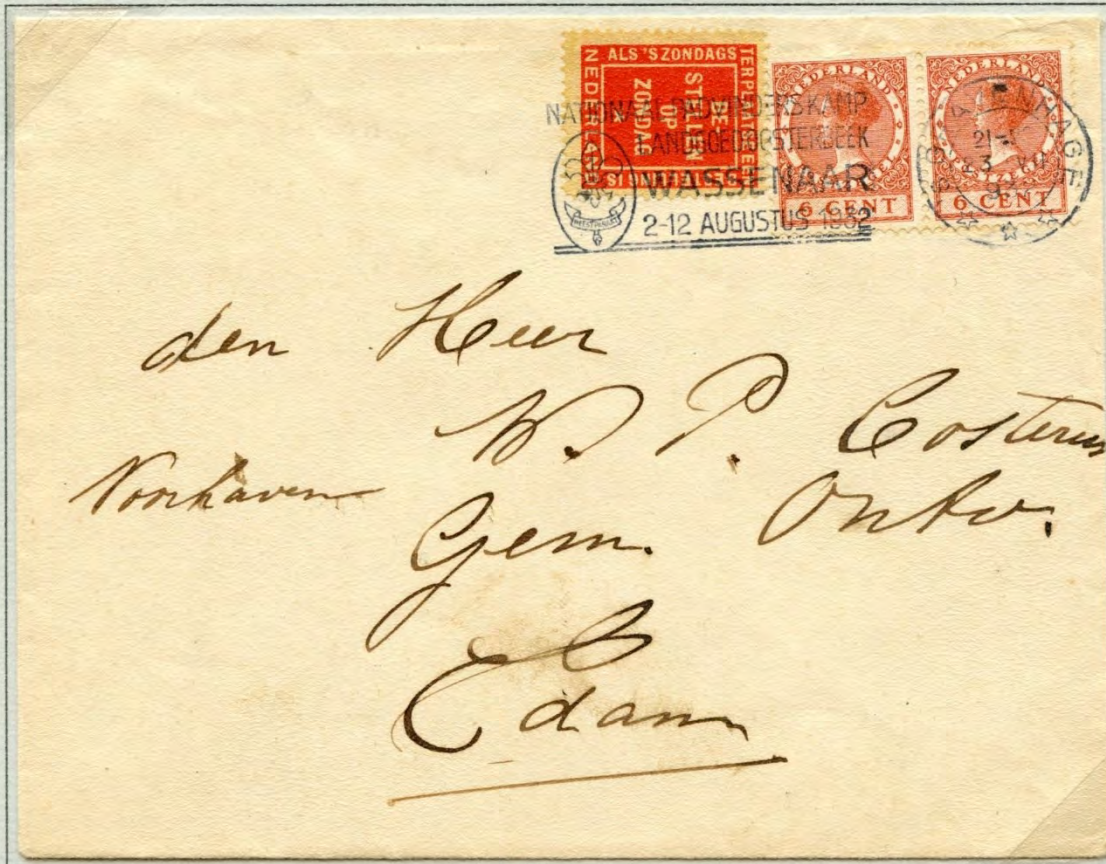 ALS 'S ZONDAGS
BE
STELLEN
OP
ZONDAG
NEDERLAND
NATIONAAL PADVINDERSKAMP
LANDGOED OOSTERBEEK
WASSENAAR
2-12 AUGUSTUS 1932
NEDERLAND
6 CENT
NEDERLAND
6 CENT
'S GRAVENHAGE
den Heer
W. P. Costerus
Voorhaven
Gem. Ontv.
Edam